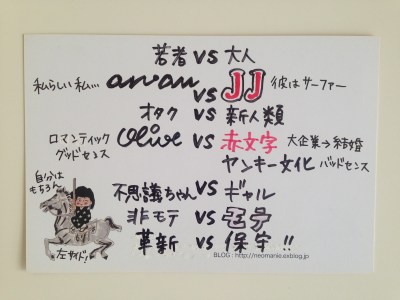 若者 VS 大人
私らしい私… anan VS JJ 彼はサーファー
オタク VS 新人類
ロマンティック グッドセンス Olive VS 赤文字 大企業→結婚
ヤンキー文化 バッドセンス
自分はもちろん
不思議ちゃん VS ギャル
非モテ VS モテ
革新 VS 保守!!
左サイド!
BLOG : http://neomanie.exblog.jp